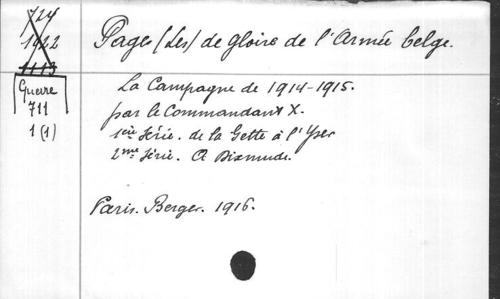 724
1922
1113
Guerre
711
1 (1)
Pages (Les) de gloire de l'Armée belge.
La Campagne de 1914-1915.
par le Commandant X.
1ère Série. de la Gette à l'Yser
2me Série. A Dixmude.
Paris. Berger. 1916.